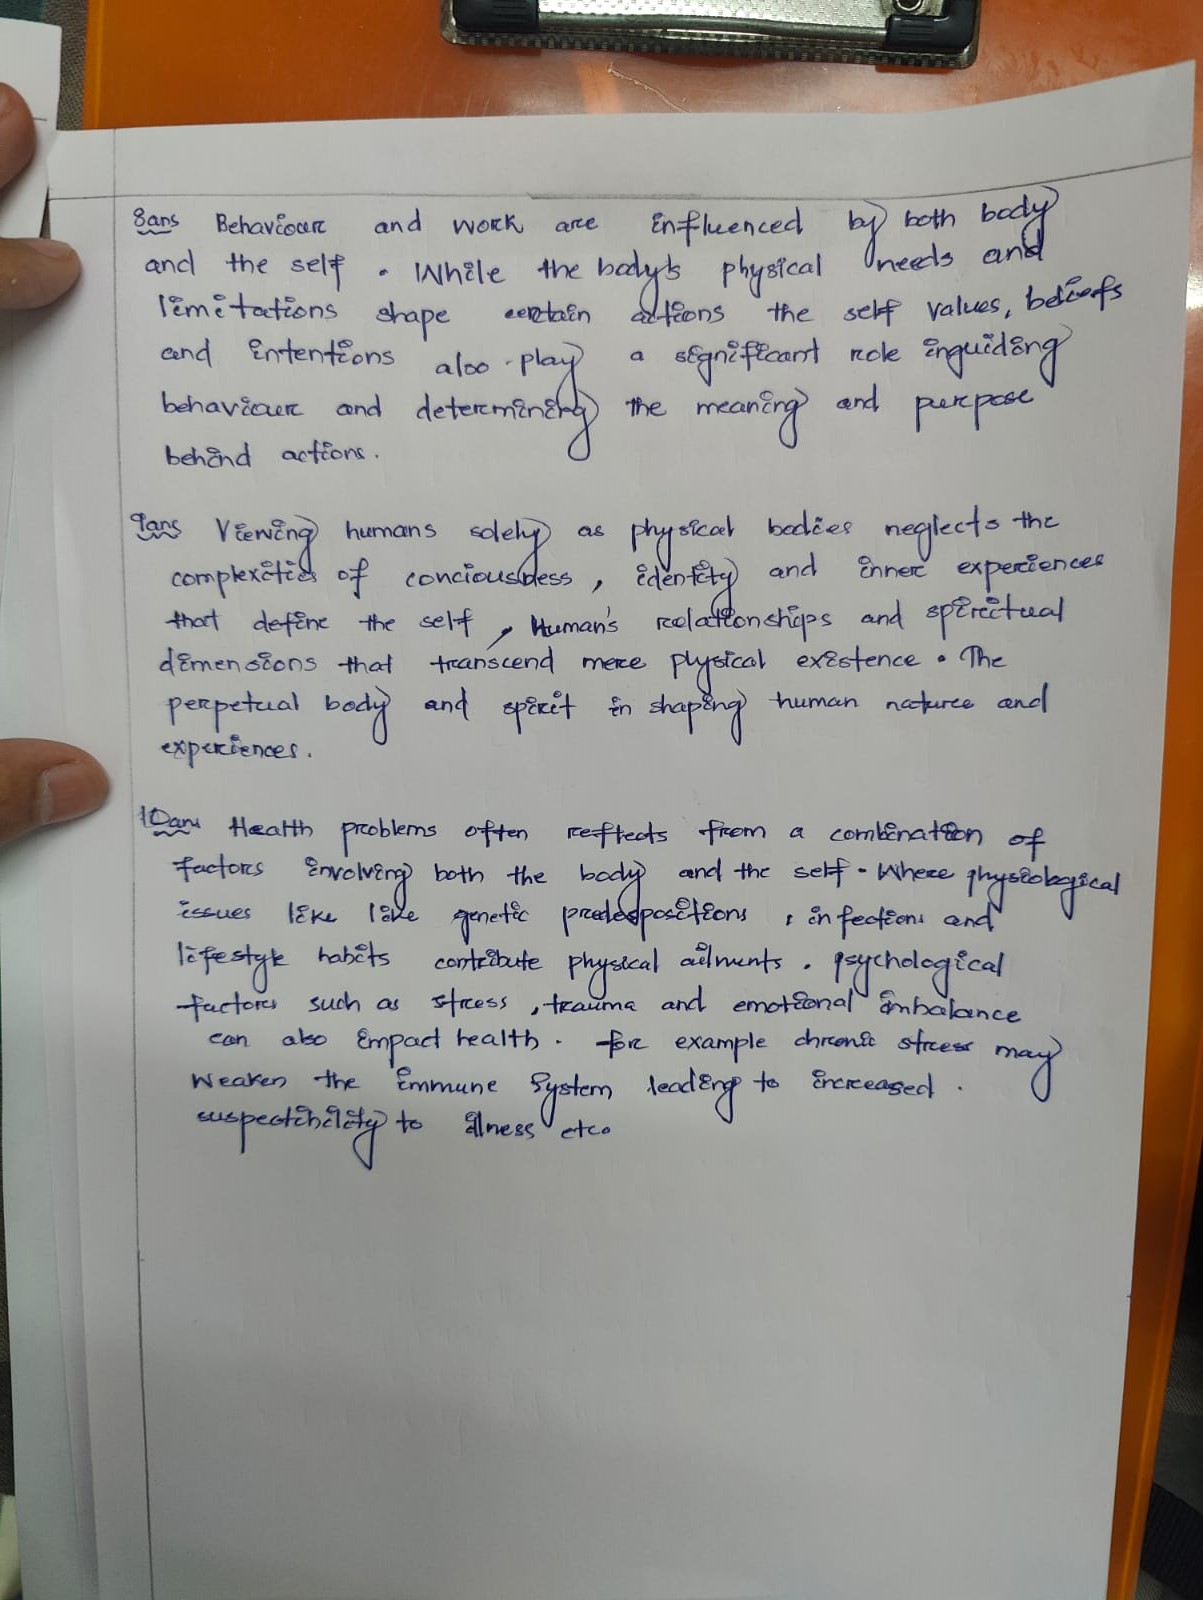 8ans Behaviour and work are influenced by both body
and the self . While the body's physical needs and
limitations shape certain actions the self values, beliefs
and intentions also play a significant role inguiding
behaviour and determining the meaning and purpose
behind actions.
9ans Viewing humans solely as physical bodies neglects the
complexities of conciousness , identity and inner experiences
that define the self , Human's relationships and spiritual
dimensions that transcend mere plysical existence . The
perpetual body and spirit in shaping human nature and
experiences.
10ans Health problems often reflects from a combination of
factors involving both the body and the self . Where physiological
issues like like genetic predespositions , infections and
lifestyle habits contribute physical ailments . psychological
factors such as stress , trauma and emotional imbalance
can also impact health . for example chronic stress may
weaken the immune system leading to increased .
suspectibility to illness etc.